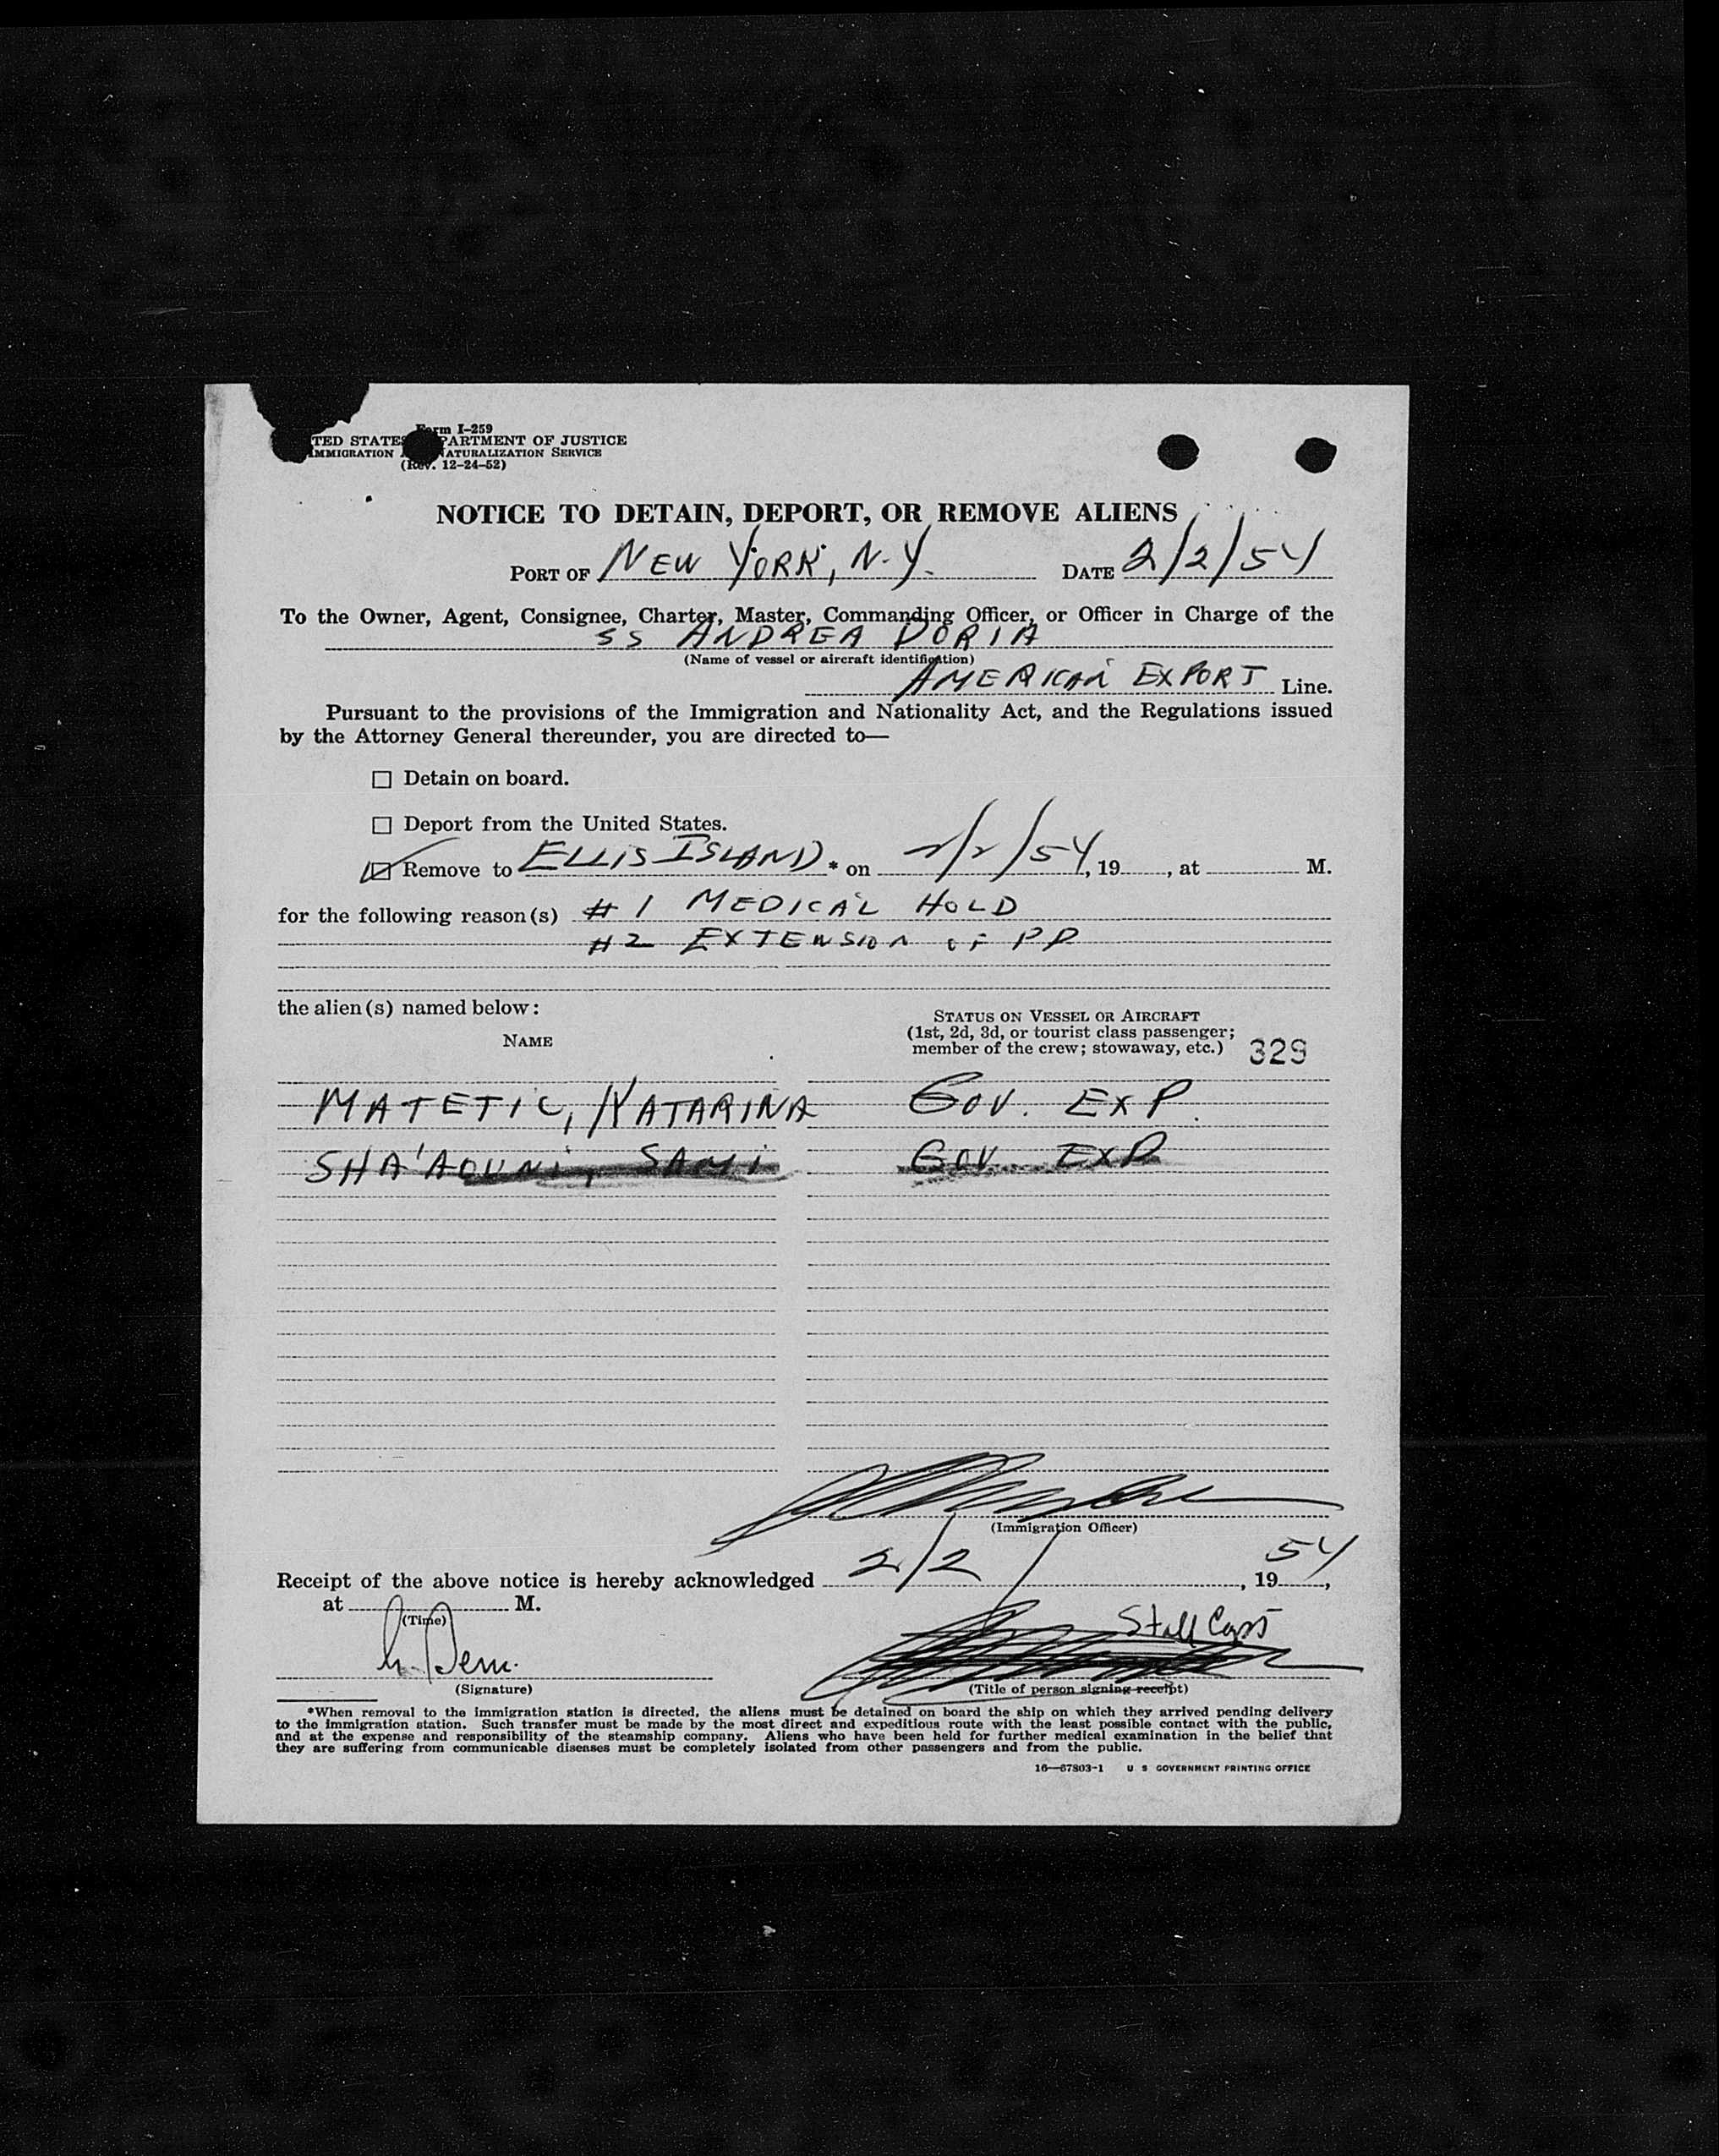 Form I-259
TED STATES PARTMENT OF JUSTICE
IMMIGRATION NATURALIZATION SERVICE
(Rev. 12-24-52)
NOTICE TO DETAIN, DEPORT, OR REMOVE ALIENS
PORT OF NEW YORK, N.Y. DATE 2/2/54
To the Owner, Agent, Consignee, Charter, Master, Commanding Officer, or Officer in Charge of the
SS ANDREA DORIA
(Name of vessel or aircraft identification)
AMERICAN EXPORT Line.
Pursuant to the provisions of the Immigration and Nationality Act, and the Regulations issued
by the Attorney General thereunder, you are directed to—
☐ Detain on board.
☐ Deport from the United States.
☑ Remove to ELLIS ISLAND * on 2/2/54, 19 , at M.
for the following reason(s) #1 MEDICAL HOLD
#2 EXTENSION OF PP
the alien(s) named below:
NAME
STATUS ON VESSEL OR AIRCRAFT
(1st, 2d, 3d, or tourist class passenger;
member of the crew; stowaway, etc.) 329
MATETIC, KATARINA GOV. EXP.
SHA'AOUNI, SAMI GOV. EXP
(Immigration Officer)
Receipt of the above notice is hereby acknowledged 2/2/ , 1954,
at M.
(Time)
(Signature)
(Title of person signing receipt)
*When removal to the immigration station is directed, the aliens must be detained on board the ship on which they arrived pending delivery
to the immigration station. Such transfer must be made by the most direct and expeditious route with the least possible contact with the public,
and at the expense and responsibility of the steamship company. Aliens who have been held for further medical examination in the belief that
they are suffering from communicable diseases must be completely isolated from other passengers and from the public.
16—67803-1 U S GOVERNMENT PRINTING OFFICE